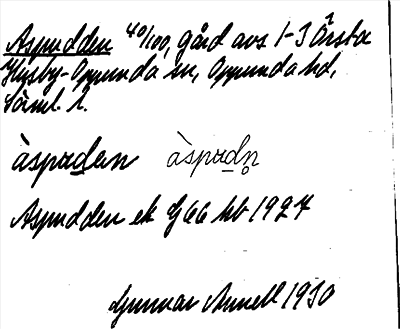 Aspudden 40/100, gård avs 1-3 Årsta
Husby-Oppunda sn, Oppunda hd,
Söml. l.
àspuden àspudn̥
Aspudden ek G66 hb 1927
Gunnar Annell 1930